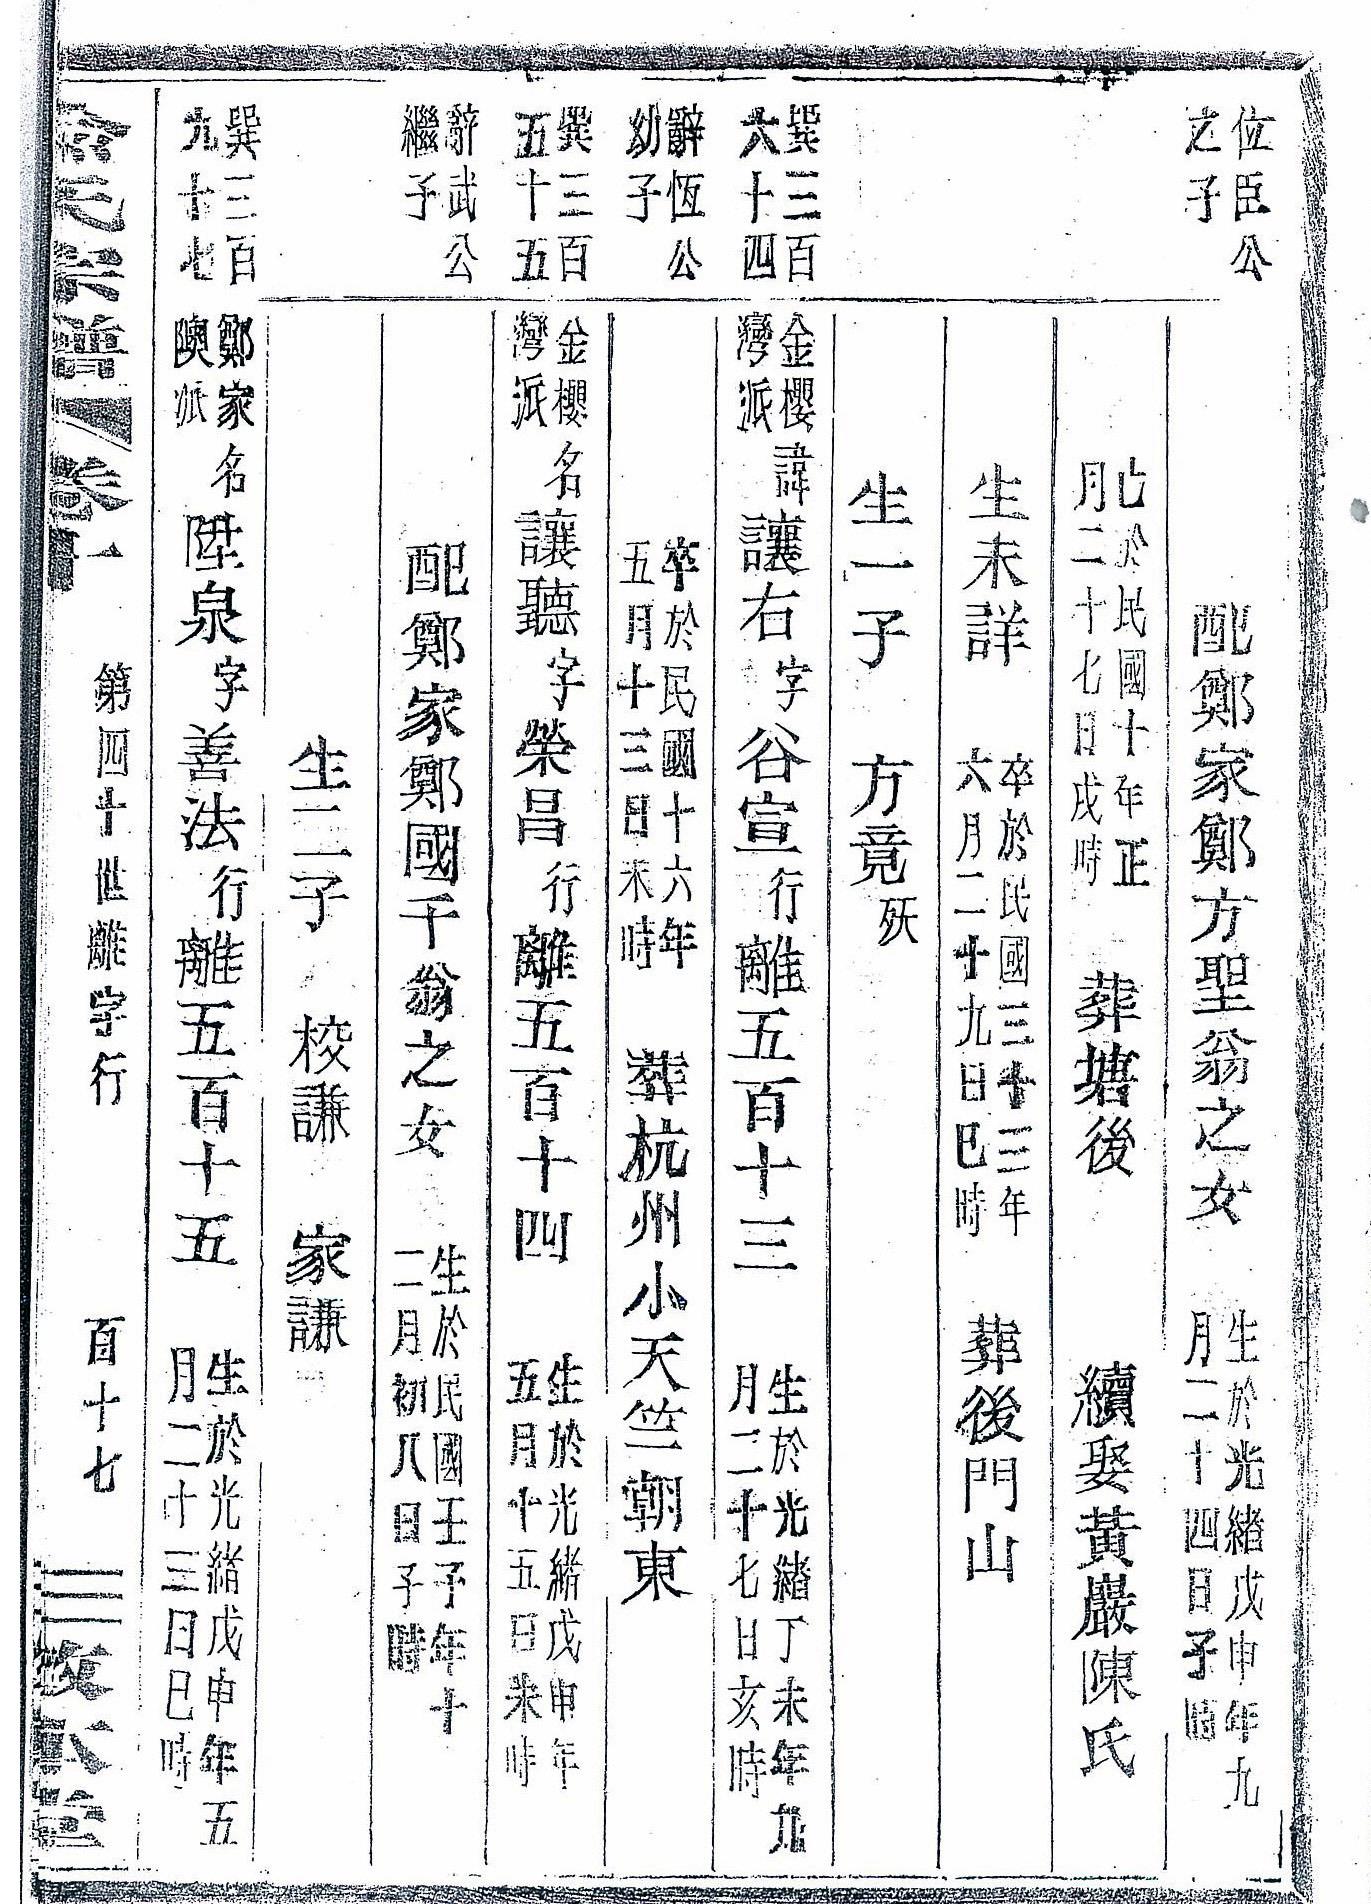 位臣公
之子
配鄭家鄭方聖翁之女
生於光緒戊申年九
月二十四日子時
亡於民國十年正
月二十七日戌時
葬塘後
續娶黃巖陳氏
生未詳
卒於民國三十三年
六月二十九日巳時
葬後門山
生一子
方竟
殀
巽三百
六十四
金櫻
灣派
諱讓右字谷宣行離五百十三
生於光緒丁未年九
月二十七日亥時
辭恆公
幼子
卒於民國十六年
五月十三日未時
葬杭州小天竺朝東
巽三百
五十五
金櫻
灣派
名讓聽字榮昌行離五百十四
生於光緒戊申年
五月十五日未時
辭武公
繼子
配鄭家鄭國千翁之女
生於民國壬子年十
二月初八日子時
生二子
校謙
家謙
巽三百
九十七
鄭家
陳派
名陞泉字善法行離五百十五
生於光緒戊申年五
月二十三日巳時
氏宗譜
卷一
第四十世離字行
百十七
三敬堂